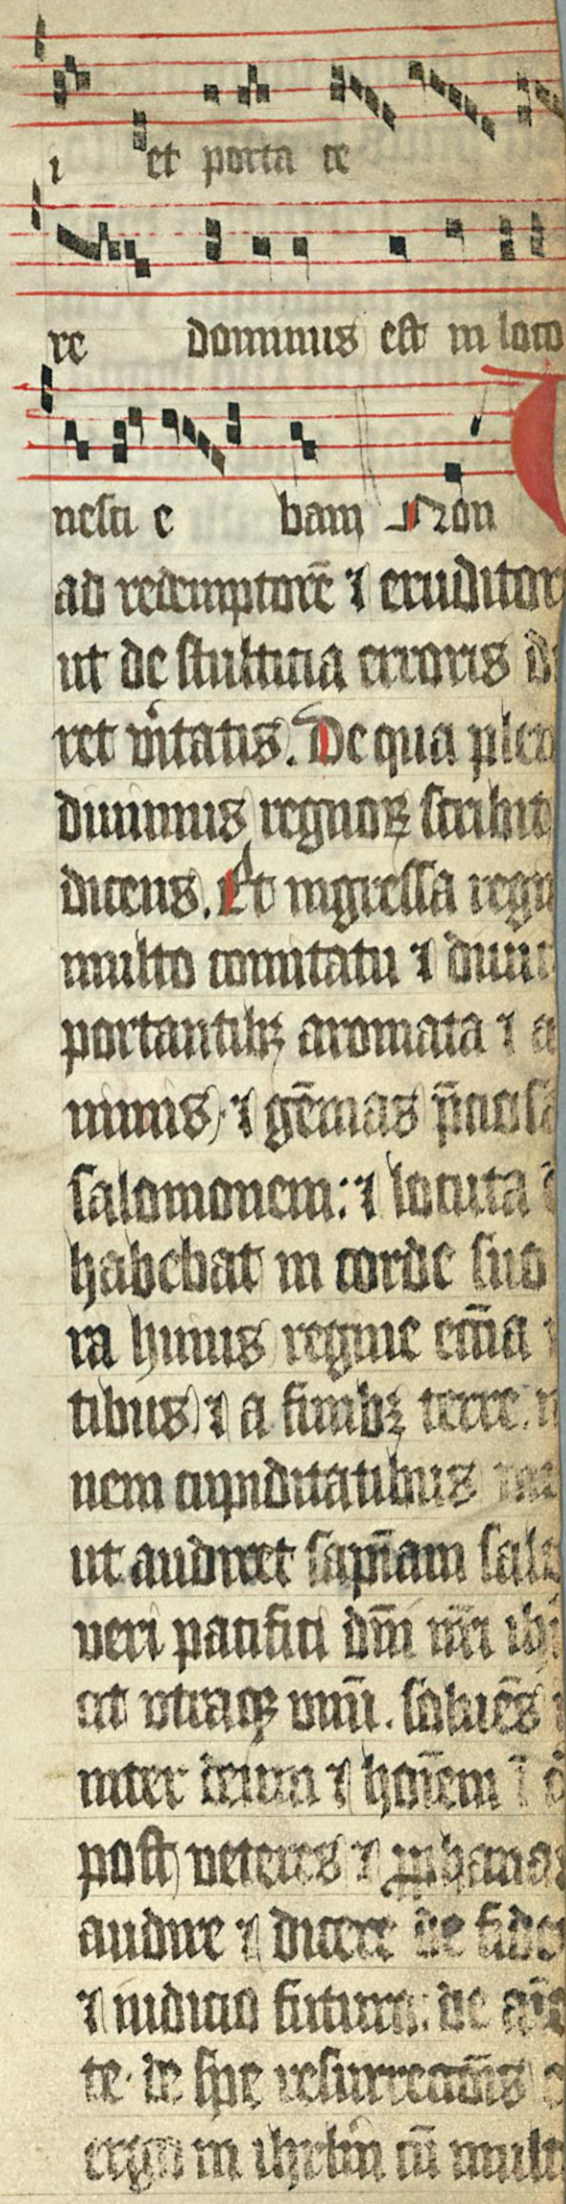 i et porta ce
re dominus est in loco
nesci e bam Non
ad redemptorē ⁊ eruditor
ut de stultitia erroris d
ret vitatis. De qua plen
diuinus regnoꝝ scribit
dicens. Et ingressa regi
multo comitatu ⁊ diuit
portantibꝫ aromata ⁊ a
nimis ⁊ gēmas p̄ciosa
salomonem: ⁊ locuta ē
habebat in corde suo
ra huius regine eccīa
tibus ⁊ a finibꝫ terre
nem cupiditatibus
ut audiret sapīam salo
veri pacifici dn̄i nr̄i ihu
cit vtraqꝫ vnū. soluēs
inter deum ⁊ hoīem ī
post veteres ⁊ phana
audire ⁊ dicere de fide
⁊ iudicio futuro: de aīe
te de spe resurrectōis
ergo in ihrlm cū multo